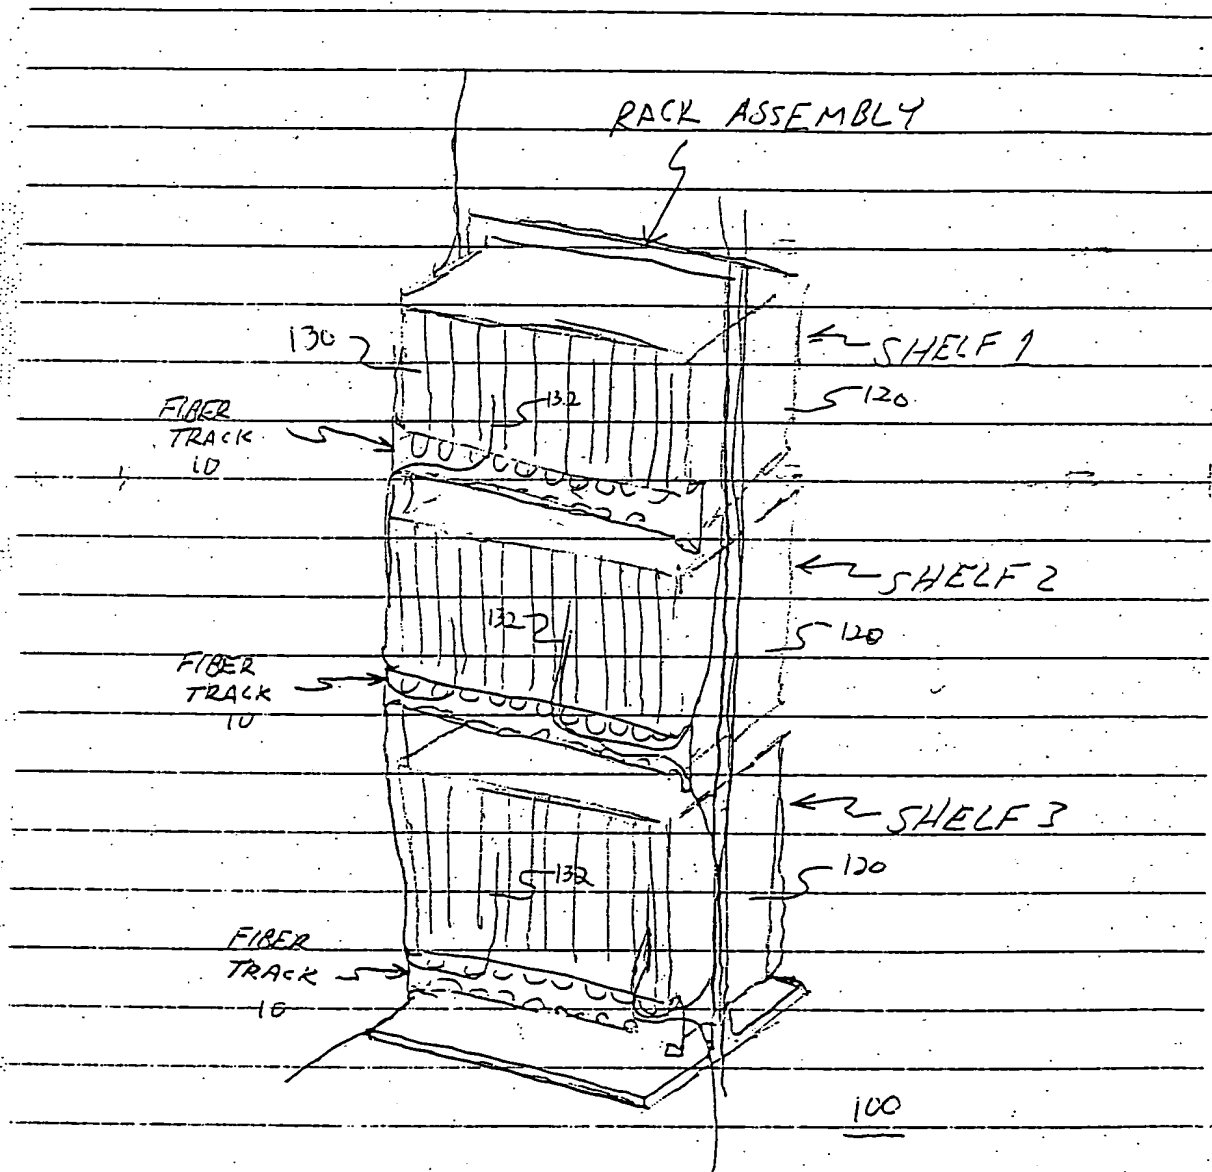 RACK ASSEMBLY
130
SHELF 1
132
120
FIBER
TRACK
10
SHELF 2
132
120
FIBER
TRACK
10
SHELF 3
132
120
FIBER
TRACK
10
100